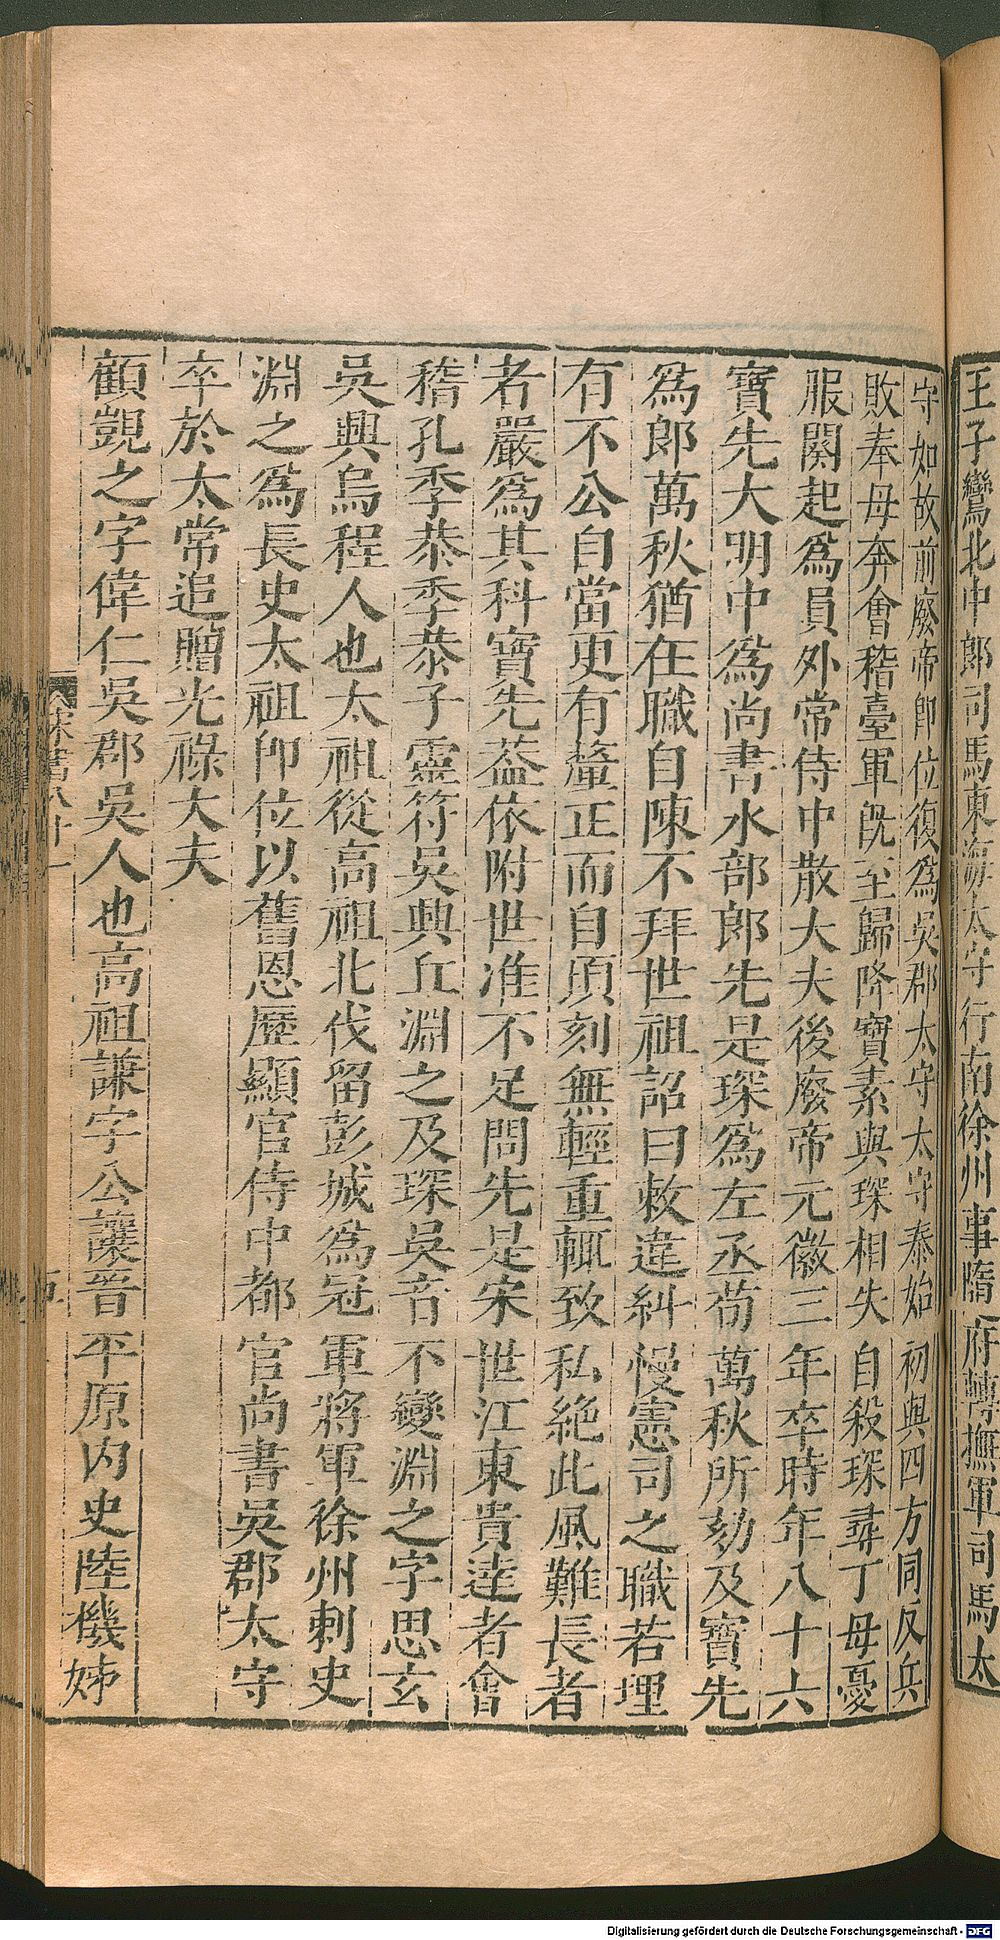 王子鸞北中郎司馬東海太守行南徐州事隋府轉撫軍司馬太
守如故前廢帝即位復爲吳郡太守太守泰始初與四方同反兵
敗奉母奔會稽臺軍旣至歸降寶素與琛相失自殺琛尋丁母憂
服闋起爲員外常侍中散大夫後廢帝元徽三年卒時年八十六
寶先大明中爲尚書水部郎先是琛爲左丞荀萬秋所劾及寶先
爲郎萬秋猶在職自陳不拜世祖詔曰敕違糾慢憲司之職若理
有不公自當更有釐正而自頃刻無輕重輒致私絶此風難長者
者嚴爲其科寶先葢依附世准不足問先是宋世江東貴達者會
稽孔季恭季恭子靈符吳興丘淵之及琛吳音不變淵之字思玄
吳興烏程人也太祖從高祖北伐留彭城爲冠軍將軍徐州刺史
淵之爲長史太祖卽位以舊恩歷顯官侍中都官尚書吳郡太守
卒於太常追贈光祿大夫
顧覬之字偉仁吳郡吳人也高祖謙字公讓晉平原内史陸機姊
宋書八十一
Digitalisierung gefördert durch die Deutsche Forschungsgemeinschaft - DFG